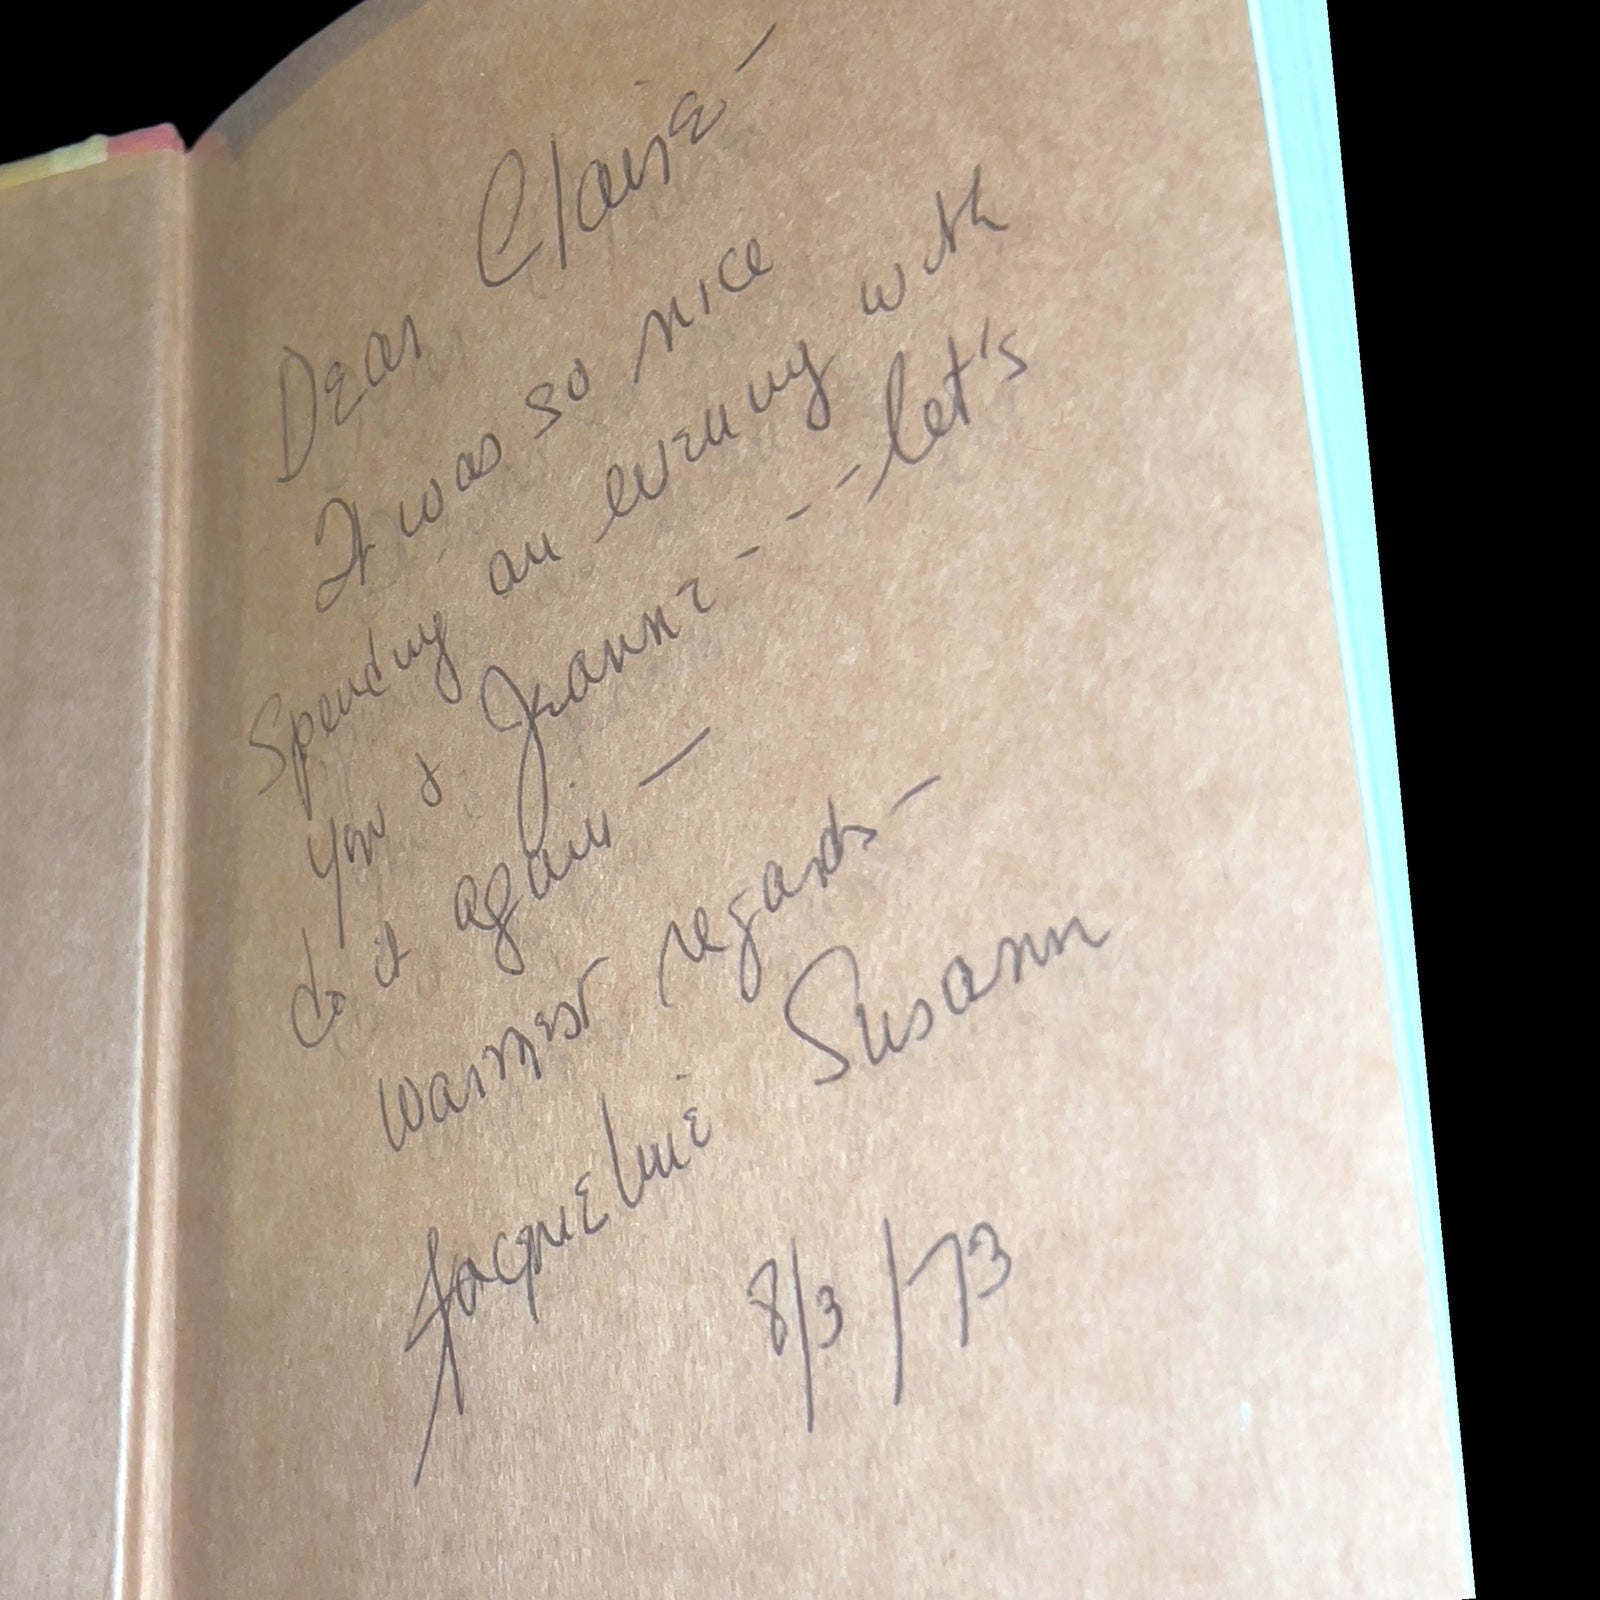 Dear Claire —
It was so nice
spending an evening with
you & Jeanne - - - let's
do it again —
warmest regards —
Jacqueline Susann
8/3/73